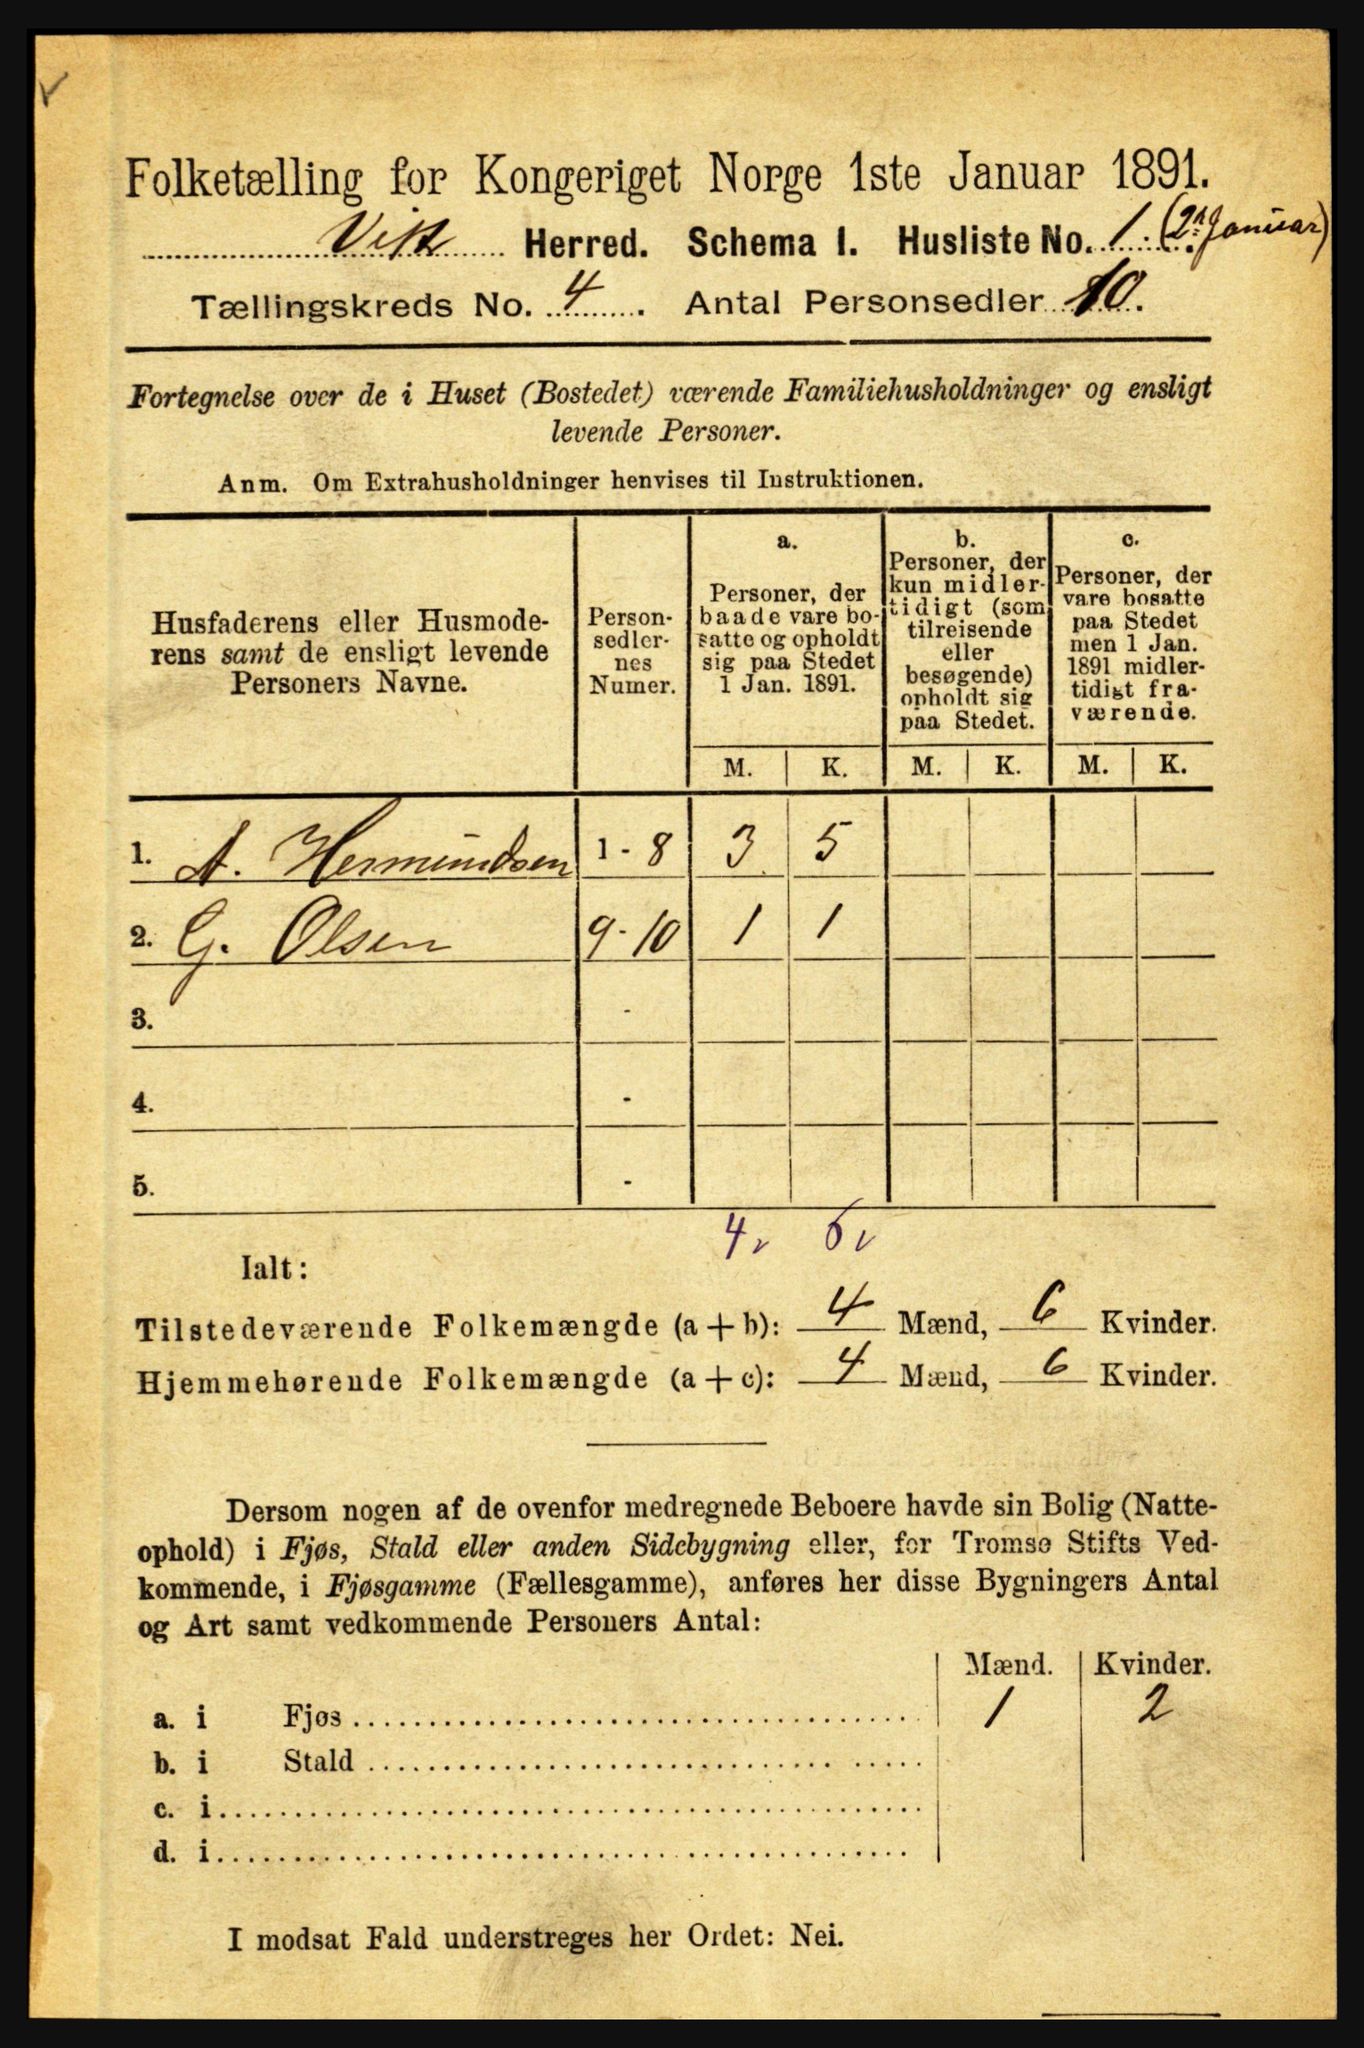 Folketælling for Kongeriget Norge 1ste Januar 1891.
Vik Herred. Schema I. Husliste No. 1 (2den Januar)
Tællingskreds No. 4. Antal Personsedler 10.
Fortegnelse over de i Huset (Bostedet) værende Familiehusholdninger og ensligt
levende Personer.
Anm. Om Extrahusholdninger henvises til Instruktionen.
Husfaderens eller Husmode-
rens samt de ensligt levende
Personers Navne.
Person-
sedler-
nes
Numer.
a.
Personer, der
baade vare bo-
satte og opholdt
sig paa Stedet
1 Jan. 1891.
b.
Personer, der
kun midler-
tidigt (som
tilreisende
eller
besøgende)
opholdt sig
paa Stedet.
c.
Personer, der
vare bosatte
paa Stedet
men 1 Jan.
1891 midler-
tidigt fra-
værende.
M. K. M. K. M. K.
1. A. Hermundsen 1 - 8 3 5
2. G. Olsen 9 - 10 1 1
3. -
4. -
5. -
4 v 6 v
Ialt:
Tilstedeværende Folkemængde (a + b): 4 Mænd, 6 Kvinder.
Hjemmehørende Folkemængde (a + c): 4 Mænd, 6 Kvinder.
Dersom nogen af de ovenfor medregnede Beboere havde sin Bolig (Natte-
ophold) i Fjøs, Stald eller anden Sidebygning eller, for Tromsø Stifts Ved-
kommende, i Fjøsgamme (Fællesgamme), anføres her disse Bygningers Antal
og Art samt vedkommende Personers Antal:
Mænd. Kvinder.
a. i Fjøs 1 2
b. i Stald
c. i
d. i
I modsat Fald understreges her Ordet: Nei.